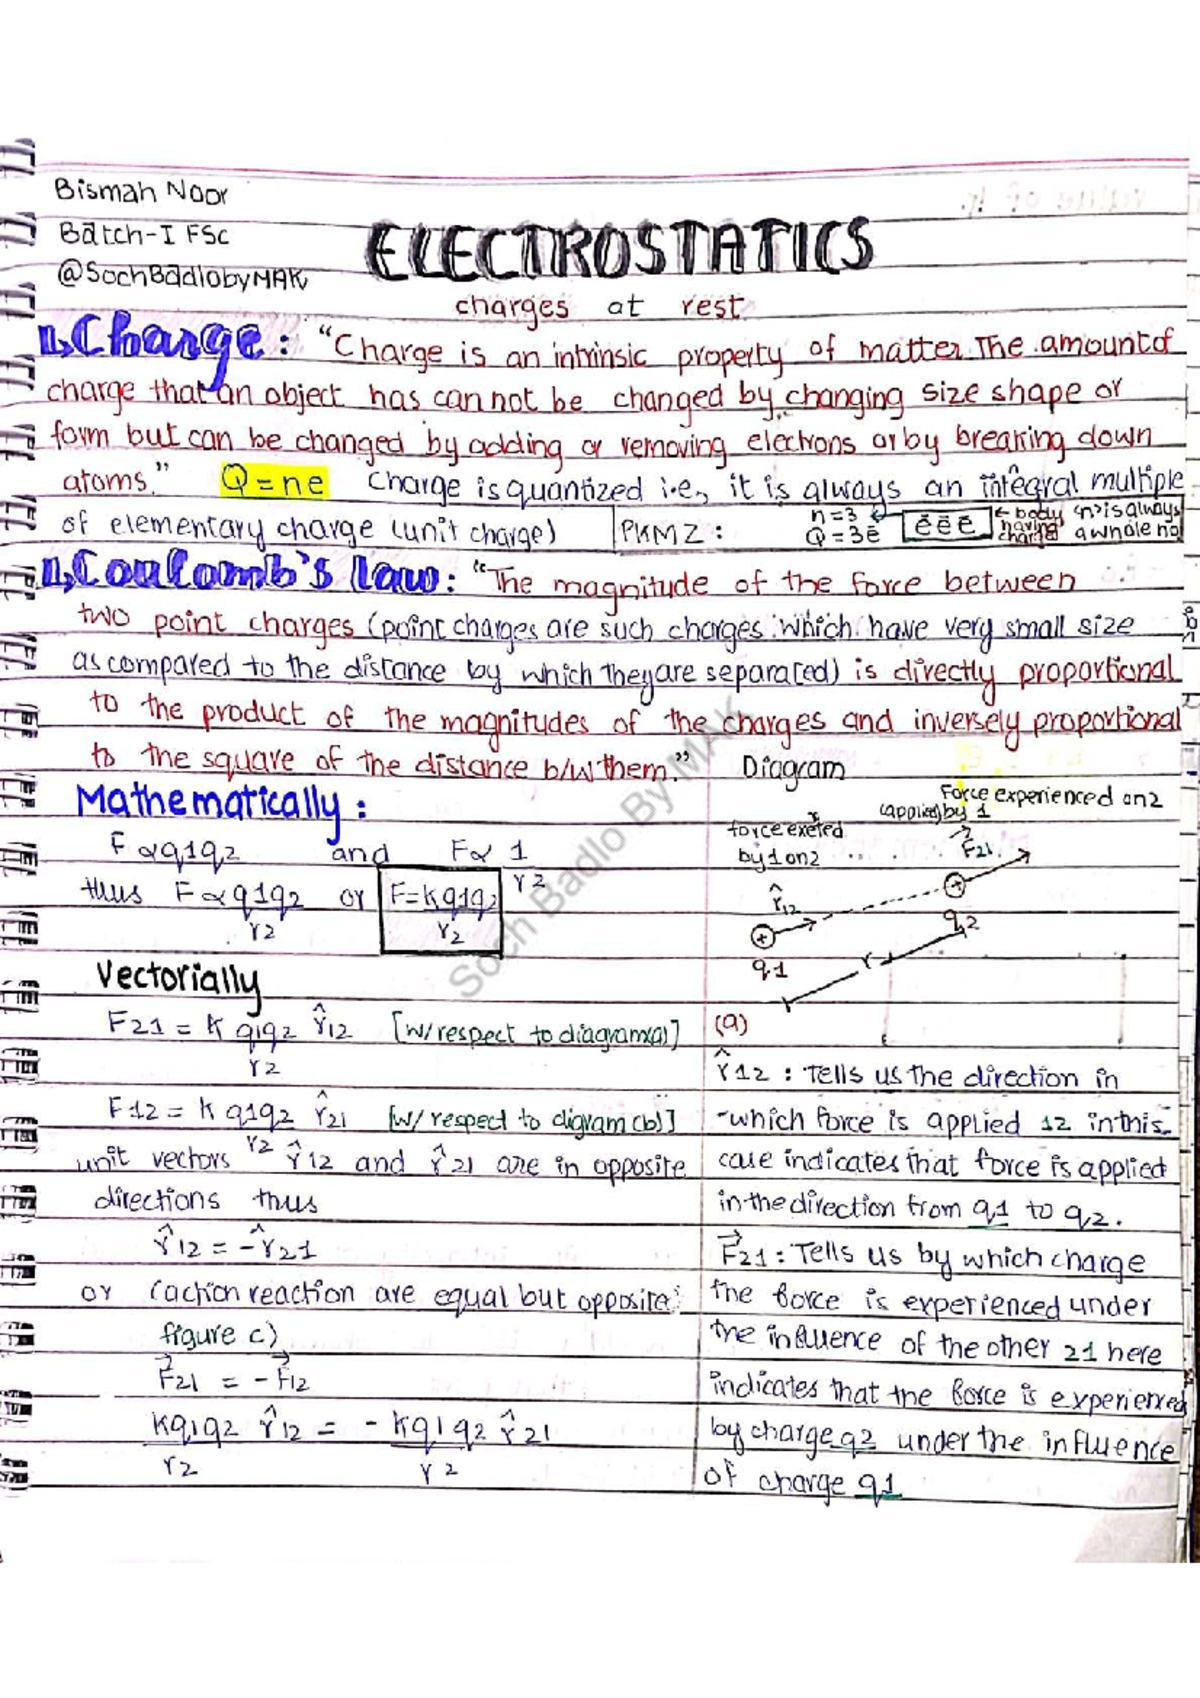 Bismah Noor
Batch-I FSc
@SochBadlobyMAK
ELECTROSTATICS
charges at rest
1,Charge: "Charge is an intrinsic property of matter. The amount of
charge that an object has cannot be changed by changing size shape or
form but can be changed by adding or removing electrons or by breaking down
atoms." Q=ne Charge is quantized i.e, it is always an integral multiple
of elementary charge (unit charge)
PKMZ: n=3 Q=3ē
ē ē ē
← body having charge
<n> is always a whole no
1,Coulomb's law: "The magnitude of the force between
two point charges (point charges are such charges which have very small size
as compared to the distance by which they are separated) is directly proportional
to the product of the magnitudes of the charges and inversely proportional
to the square of the distance b/w them."
Diagram
Mathematically:
F∝q1q2 and F∝ 1/r2
thus F∝q1q2/r2 or F=kq1q2/r2
Force experienced on 2
(applied) by 1
force exeted
by 1 on 2
F⃗21
r̂12
+
+
q1
q2
r
(a)
Vectorially
F21 = K q1q2/r2 r̂12 [w/respect to diagram(a)]
F12 = K q1q2/r2 r̂21 [w/ respect to digram(b)]
unit vectors r̂12 and r̂21 are in opposite
directions thus
r̂12 = -r̂21
or (action reaction are equal but opposite:
figure c)
F⃗21 = -F⃗12
Kq1q2/r2 r̂12 = - Kq1q2/r2 r̂21
r̂12 : Tells us the direction in
-which force is applied 12 in this
case indicates that force is applied
in the direction from q1 to q2.
F⃗21: Tells us by which charge
the force is experienced under
the influence of the other 21 here
indicates that the force is experienxed
by charge q2 under the influence
of charge q1
Soch Badlo By MAK